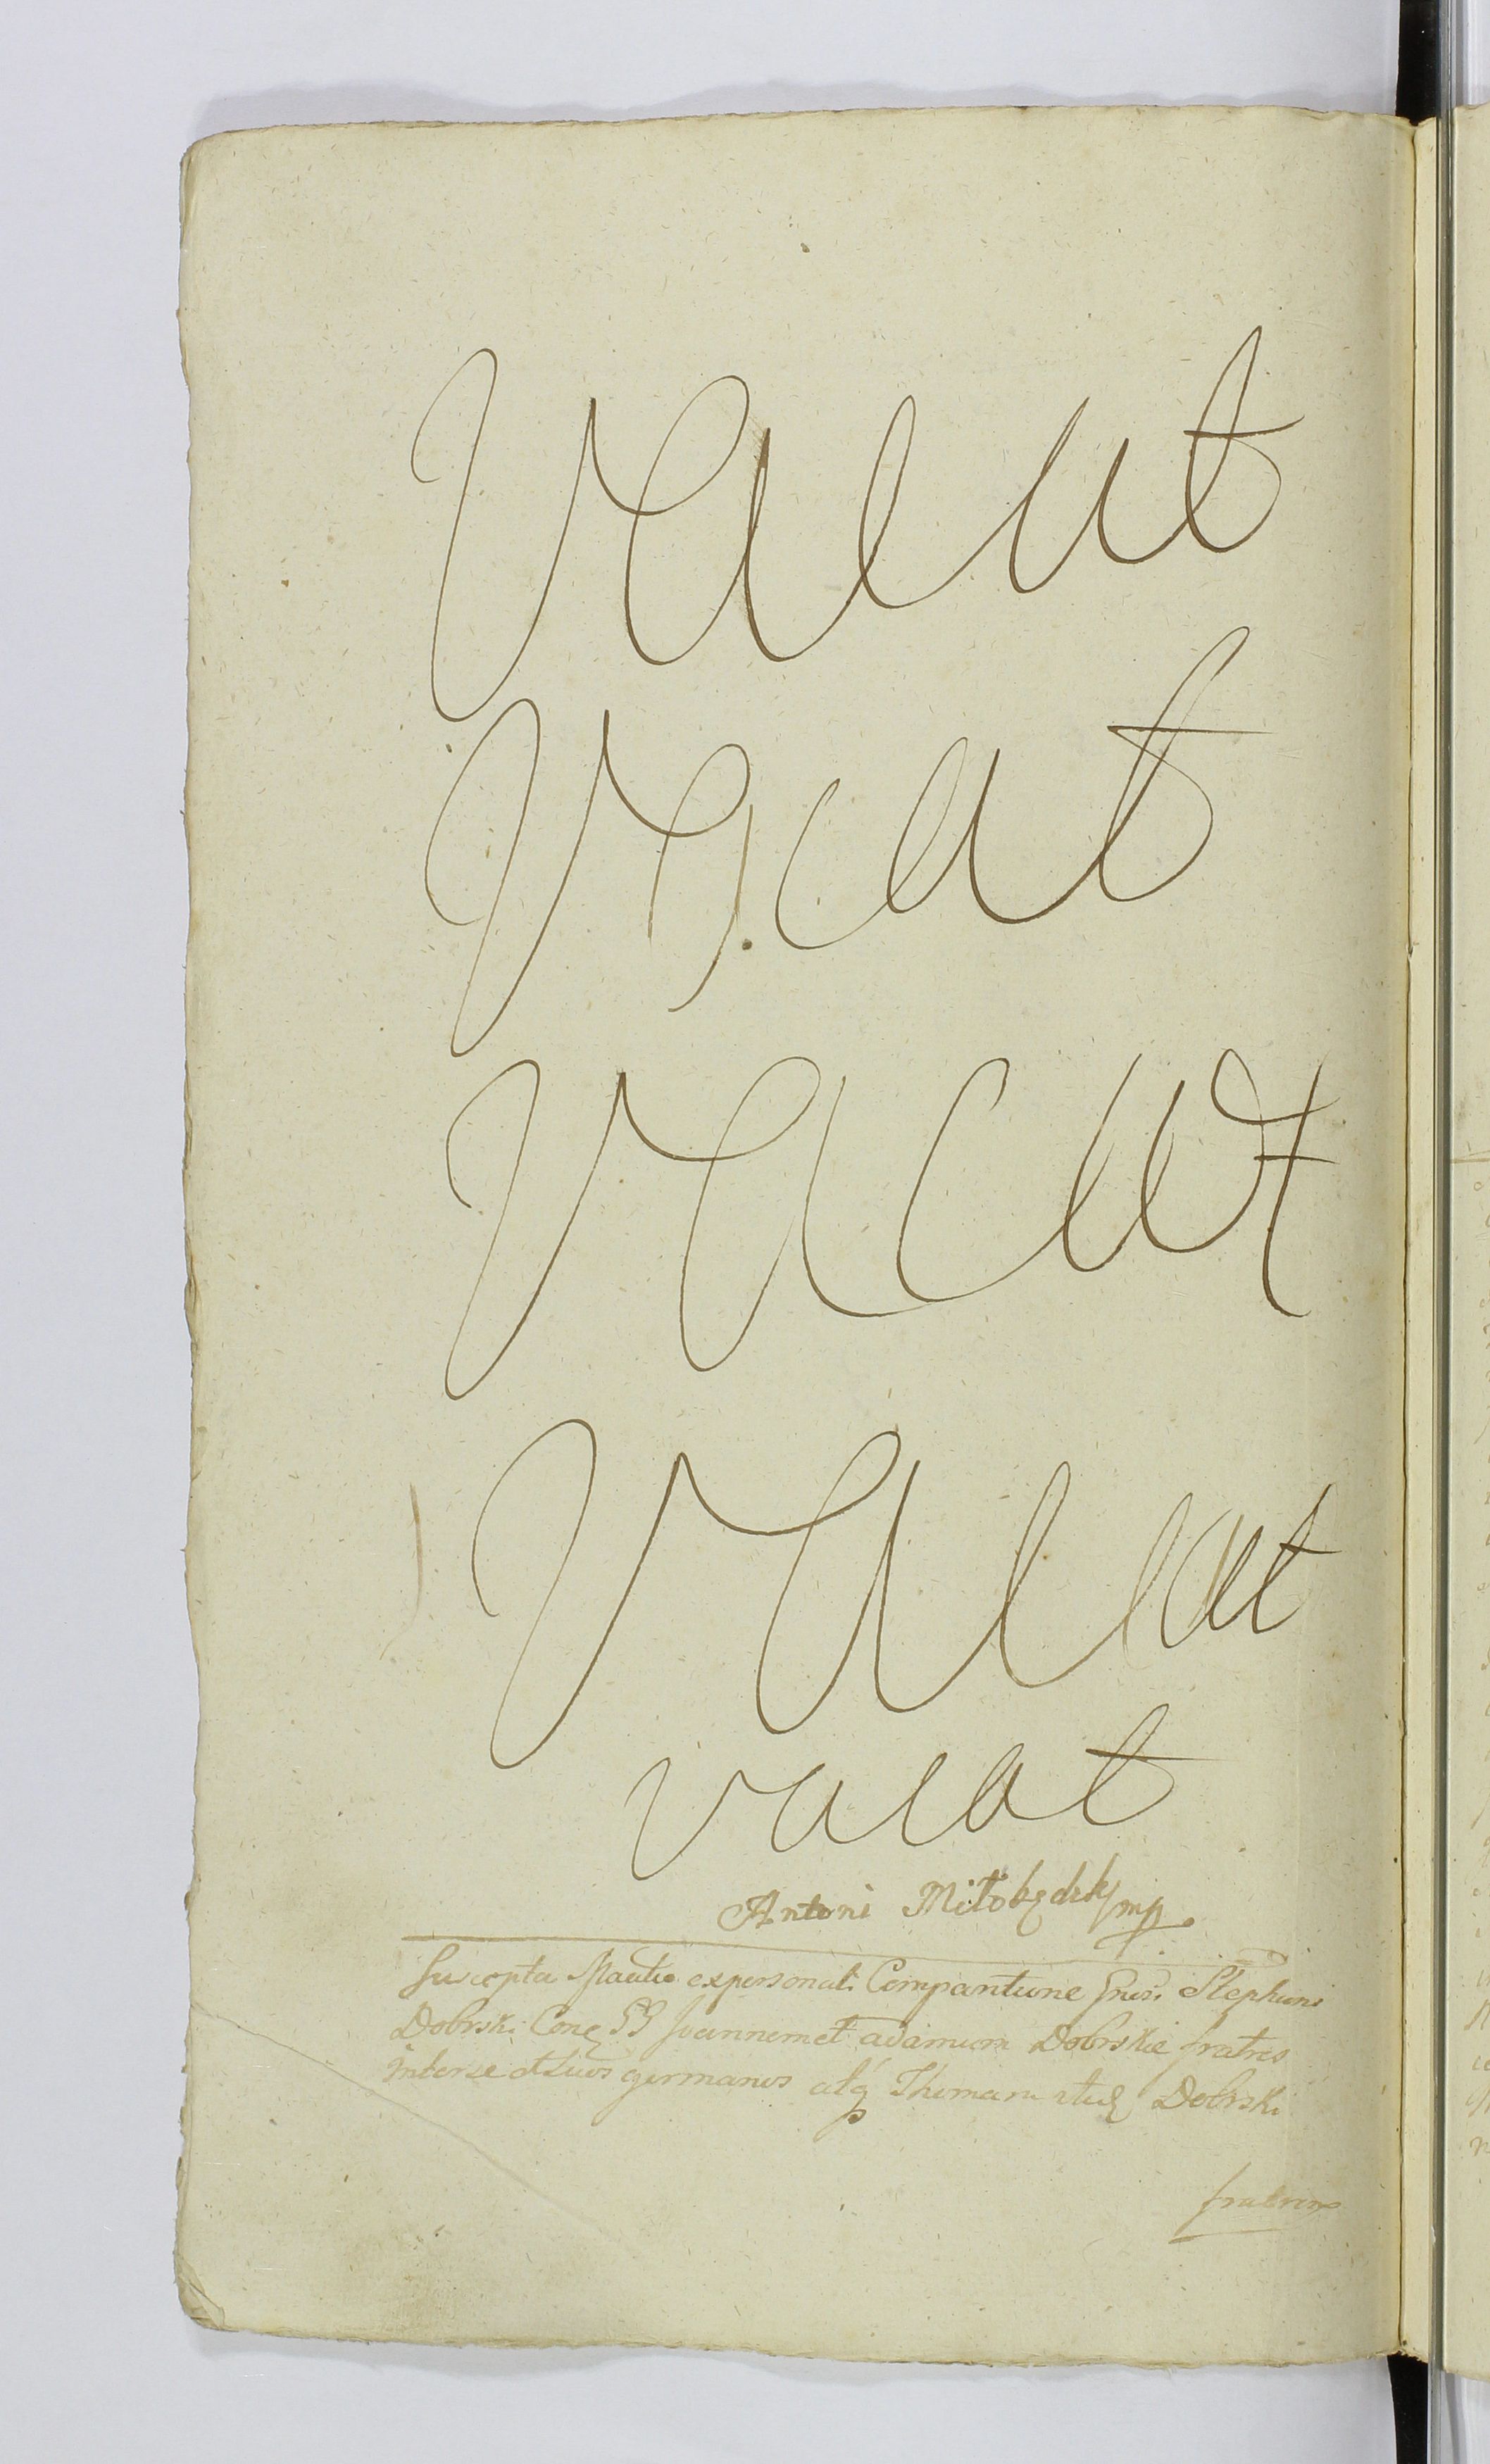 Vacat
Vacat
Vacat
Vacat
vacat
Antoni Miłobędzki mp
Suscepta expersonali Comparitione Gnsi. Stephani
Dobrski Cone SS Joannem et adamum Dobrskie fratres
interse et suos germanos atq Thomam itid Dobrski
fratrem